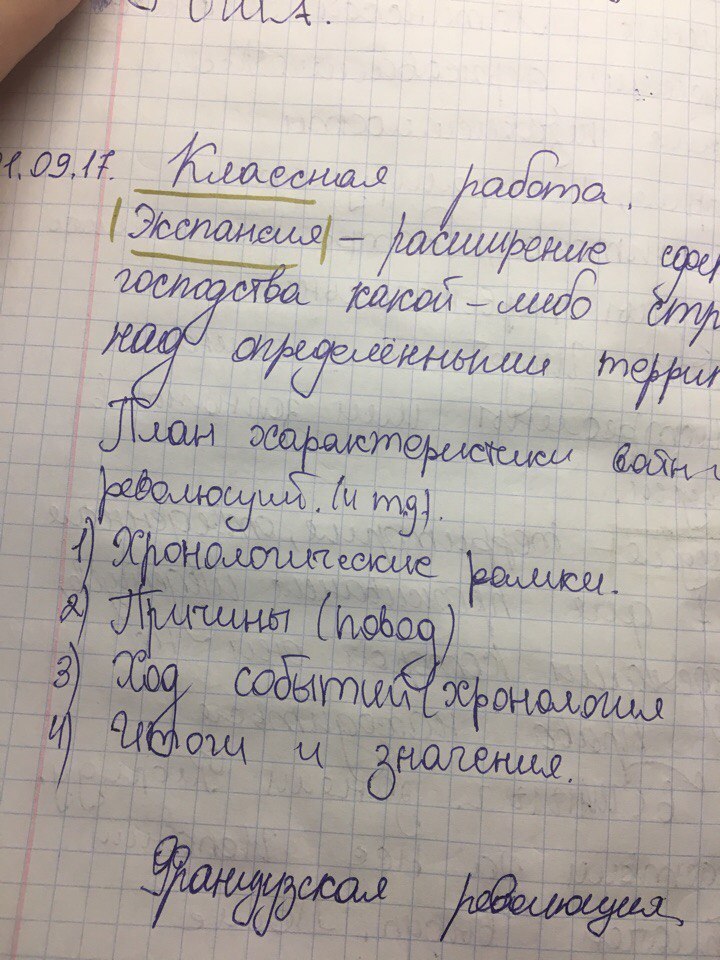 США.
1.09.17. Классная работа.
Экспансия – расширение
господства какой-либо
над определёнными
План характеристики войн
революций. (и т.д).
1) Хронологические рамки.
2) Причины (повод)
3) Ход событий (хронология
4) Итоги и значения.
Французская революция